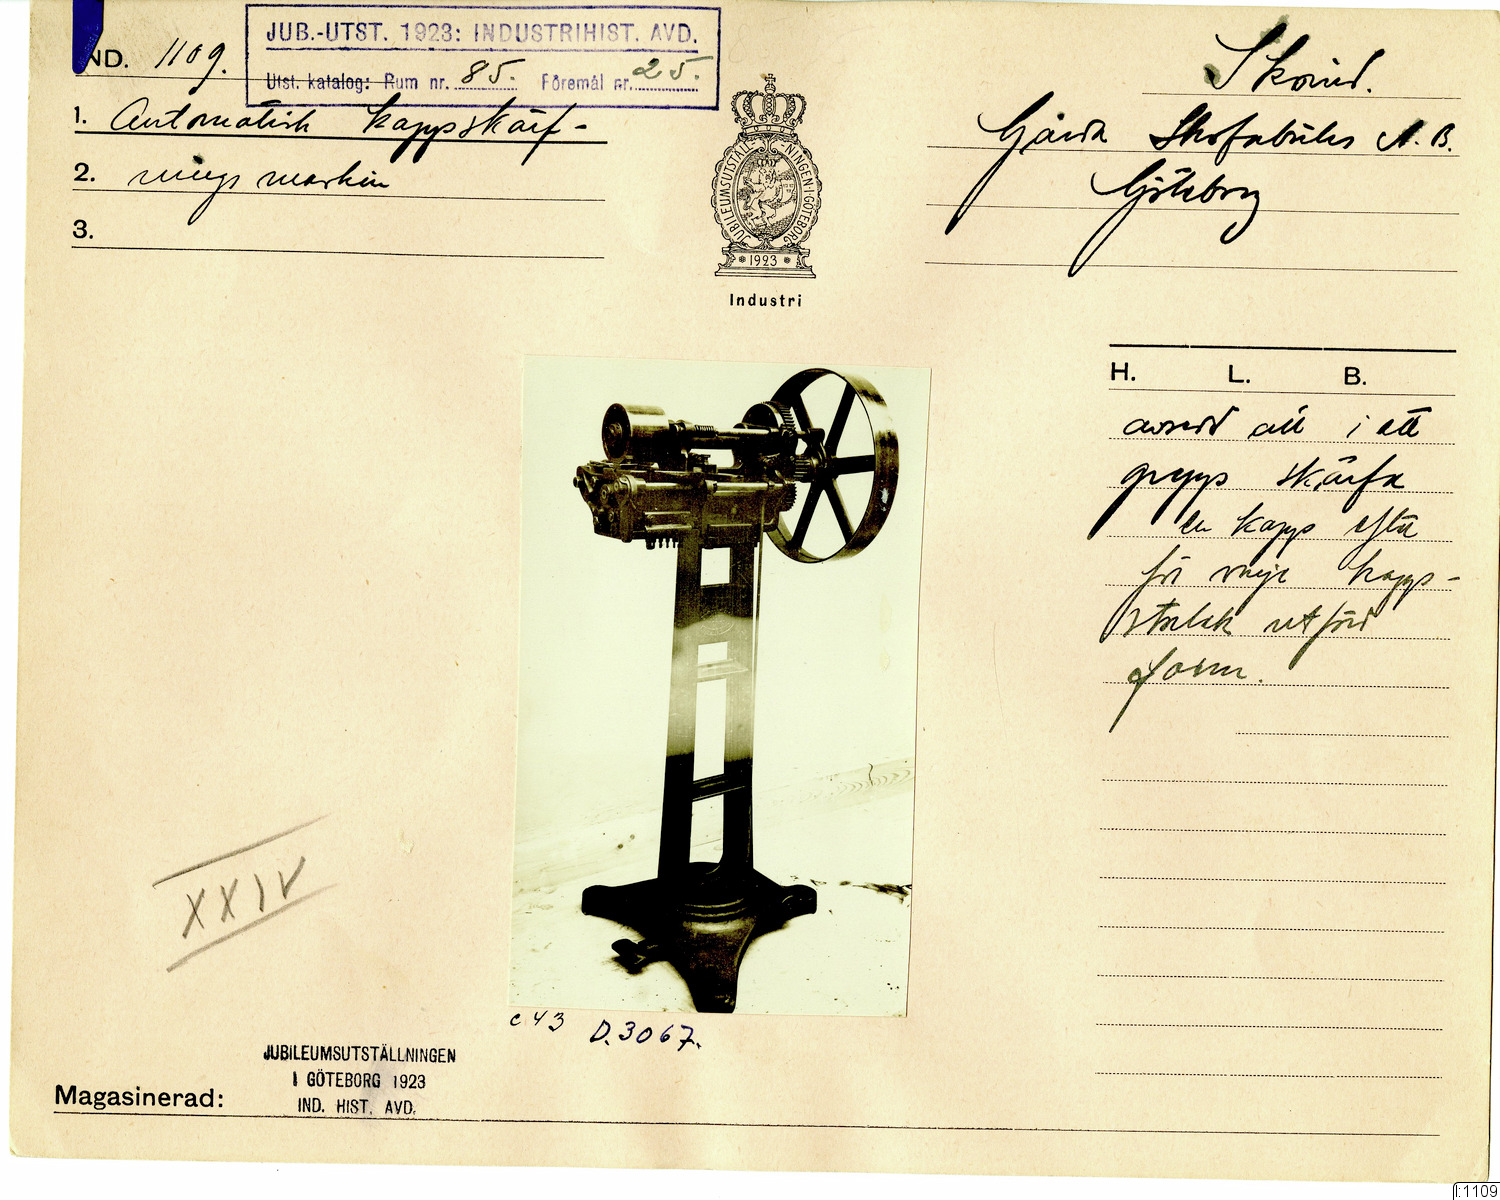 IND. 1109.
JUB.-UTST. 1923: INDUSTRIHIST. AVD.
Utst. katalog: Rum nr. 85. Föremål nr. 25.
1. Automatisk kappskärf-
2. nings maskin
3.
JUBILEUMSUTSTÄLLNINGEN·I·GÖTEBORG
*1923*
Industri
Skoind.
Gårda Skofabriks A.B.
Göteborg
H. L. B.
avsedd att i ett
grepp skärfa
en kapp efter
för varje kapp-
storlek utförd
form.
XXIV
c 43 D.3067.
JUBILEUMSUTSTÄLLNINGEN
I GÖTEBORG 1923
IND. HIST. AVD.
Magasinerad:
I:1109